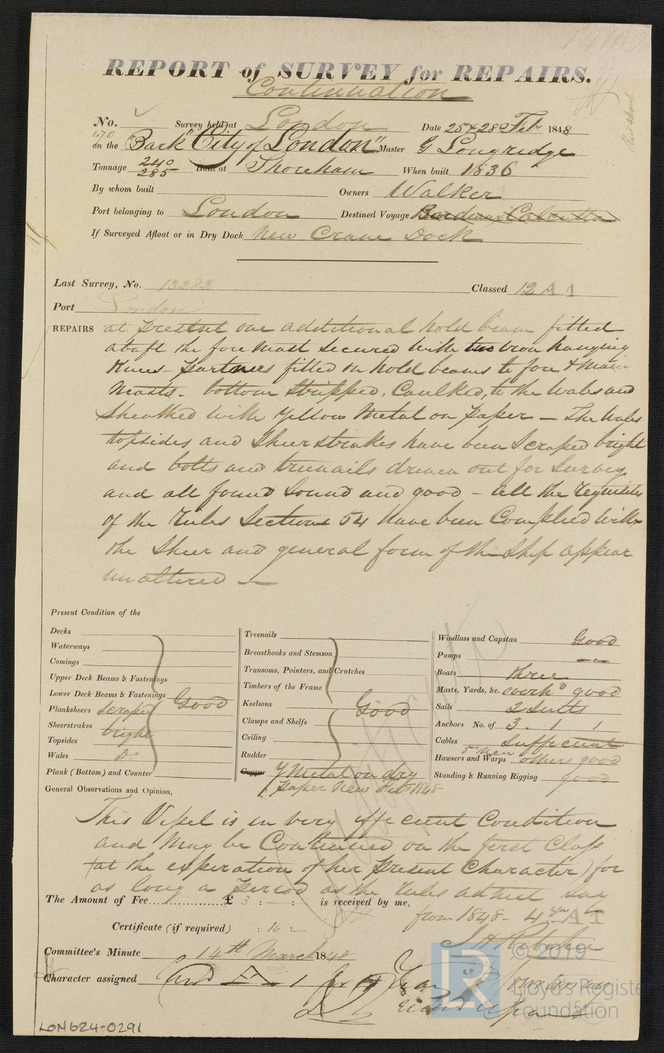 REPORT of SURVEY for REPAIRS.
Continuation
No. Survey held at London Date 25 & 28 Feb 1848
170 on the "Bark "City of London" Master G Longridge
Tonnage 240 285 Built at Shoreham When built 1836
By whom built Owners Walker
Port belonging to London Destined Voyage Calcutta
If Surveyed Afloat or in Dry Dock New Crane Dock
Last Survey, No. 13283 Classed 12 A 1
Port London
REPAIRS at Present one additional hold beam fitted
abaft the fore Mast secured with two iron hanging
Knees - partners fitted on hold beams to fore & Main
Masts - bottom Stripped, Caulked, to the Wales and
Sheathed with Yellow Metal on Paper - The Wales
topsides and Sheerstrakes have been Scraped bright
and bolts and treenails driven out for Survey
and all found Sound and good - all the requisites
of the Rules Section 54 have been Complied with
the Sheer and general form of the Ship appear
unaltered -
Present Condition of the
Decks
Waterways
Comings
Upper Deck Beams & Fastenings
Lower Deck Beams & Fastenings Good
Planksheers scraped
Sheerstrakes bright
Topsides
Wales Do
Plank (Bottom) and Counter
Treenails
Breasthooks and Stemson
Transoms, Pointers, and Crutches
Timbers of the Frame
Keelsons Good
Clamps and Shelfs
Ceiling
Rudder
Copper Y Metal on dry
paper New Feb 1848
Windlass and Capstan Good
Pumps
Boats three
Masts, Yards, &c. overhd good
Sails 2 Suits
Anchors No. of 3. 1 1
Cables sufficient
Hawsers and Warps New others good
Standing & Running Rigging good
General Observations and Opinion,
This Vessel is in very efficient Condition
and May be Continued on the first Class
(at the expiration of her present Character) for
as long a period as the rules admit say
The Amount of Fee £ 3 : - : is received by me,
from 1848 - 4 yrs A 1
Certificate (if required) : 10 : -
Committee's Minute 14th March 1848
Character assigned
LON624-0291
© 2019
Lloyd's Register
Foundation